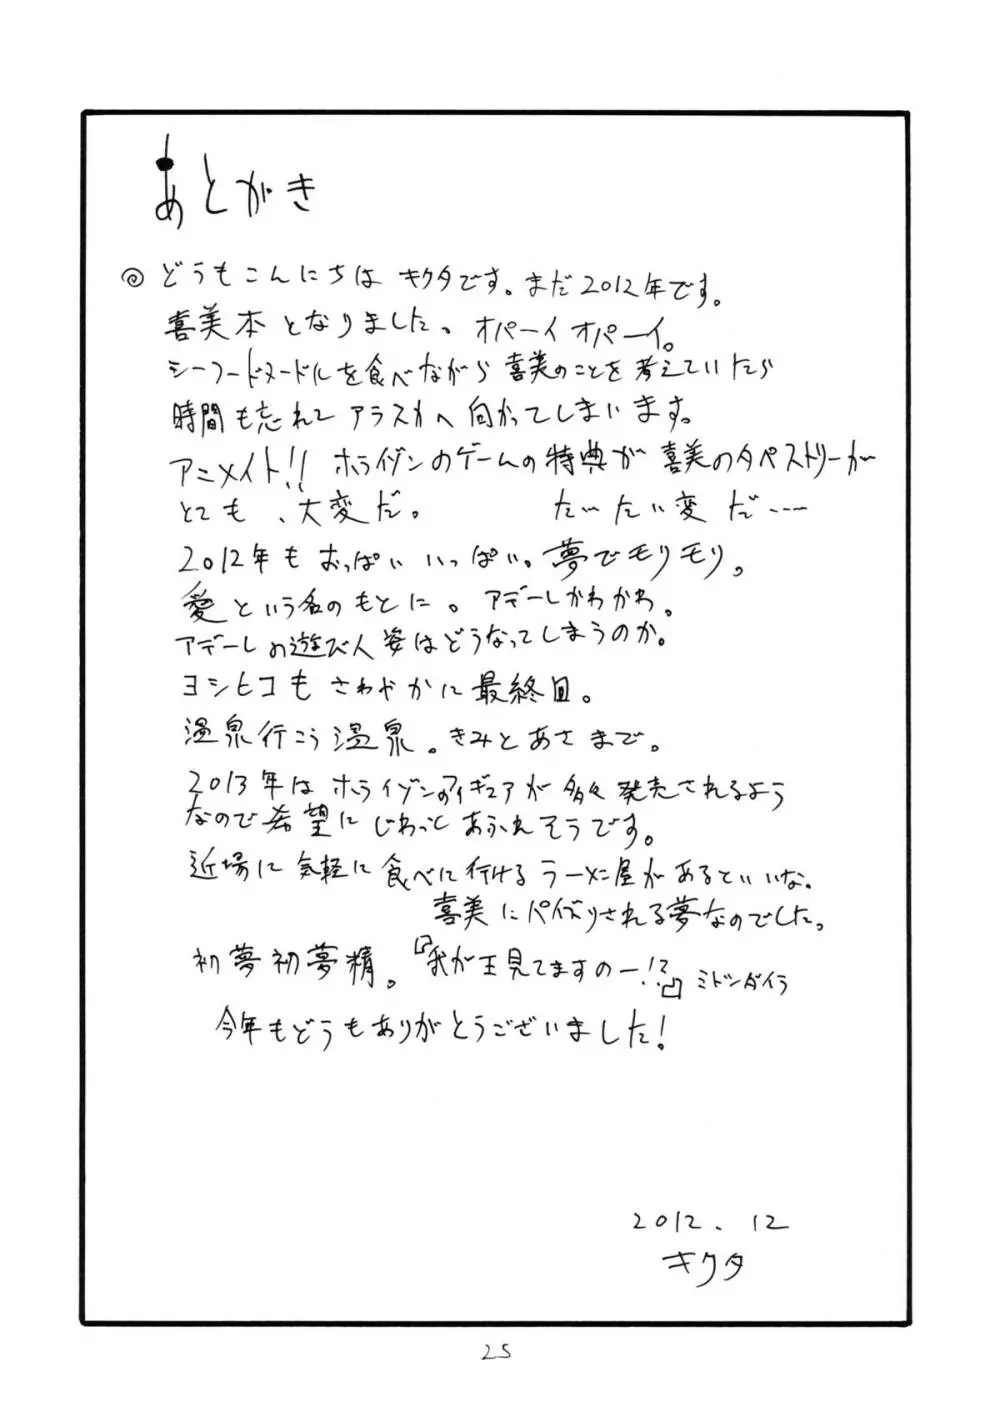 あとがき
◎ どうもこんにちは キクタです。まだ2012年です。
喜美本となりました。オパーイオパーイ。
シーフードヌードルを食べながら喜美のことを考えていたら
時間も忘れて アラスカへ向かってしまいます。
アニメイト!! ホライゾンのゲームの特典が 喜美のタペストリーが
とても、大変だ。 たいたい変だ……
2012年もおっぱいいっぱい。夢でモリモリ。
愛という名のもとに。アデーレかわかわ。
アデーレの遊び人姿はどうなってしまうのか。
ヨシヒコもさわやかに最終回。
温泉行こう温泉。きみとあさまで。
2013年は ホライゾンのフィギュアが 多々発売されるよう
なので希望にじわっとあふれそうです。
近場に気軽に食べに行けるラーメン屋があるといいな。
喜美にパイズリされる夢なのでした。
初夢初夢精。『我が王見てますのー!?』ミトツダイラ
今年もどうもありがとうございました!
2012.12
キクタ
25